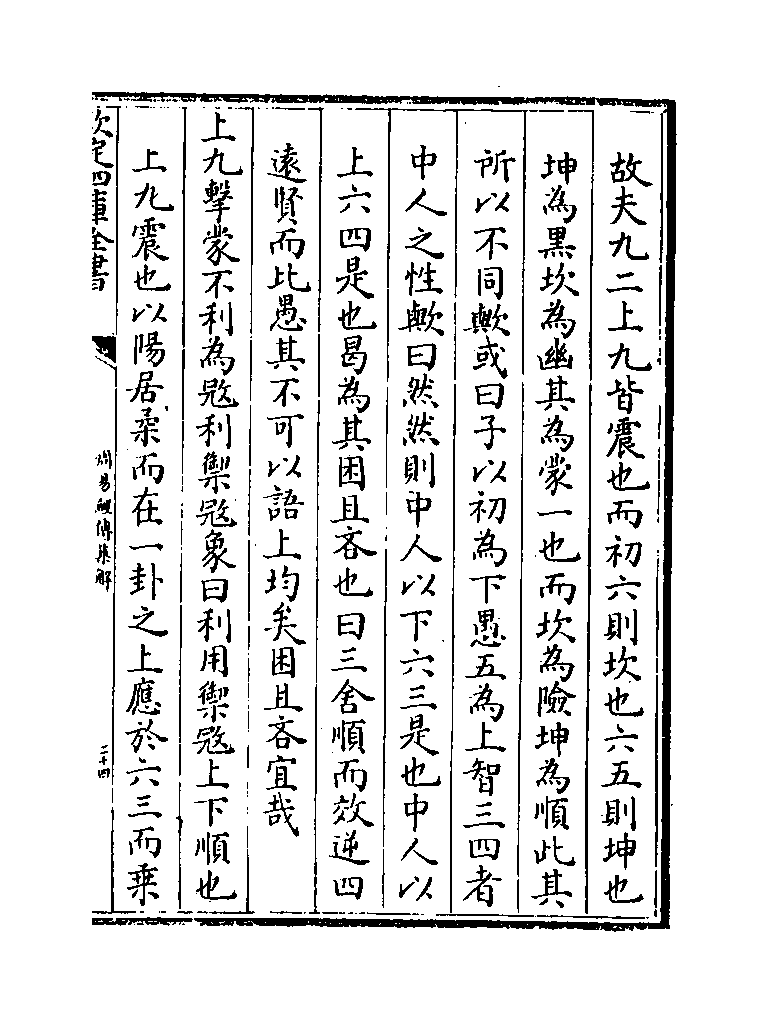 故夫九二上九皆震也而初六則坎也六五則坤也
坤為黑坎為幽其為蒙一也而坎為險坤為順此其
所以不同歟或曰子以初為下愚五為上智三四者
中人之性歟曰然然則中人以下六三是也中人以
上六四是也曷為其困且吝也曰三舍順而效逆四
遠賢而比愚其不可以語上均矣困且吝宜哉
上九擊蒙不利為寇利禦寇象曰利用禦寇上下順也
上九震也以陽居柔而在一卦之上應於六三而乗
欽定四庫全書
周易經傳集解
二十四